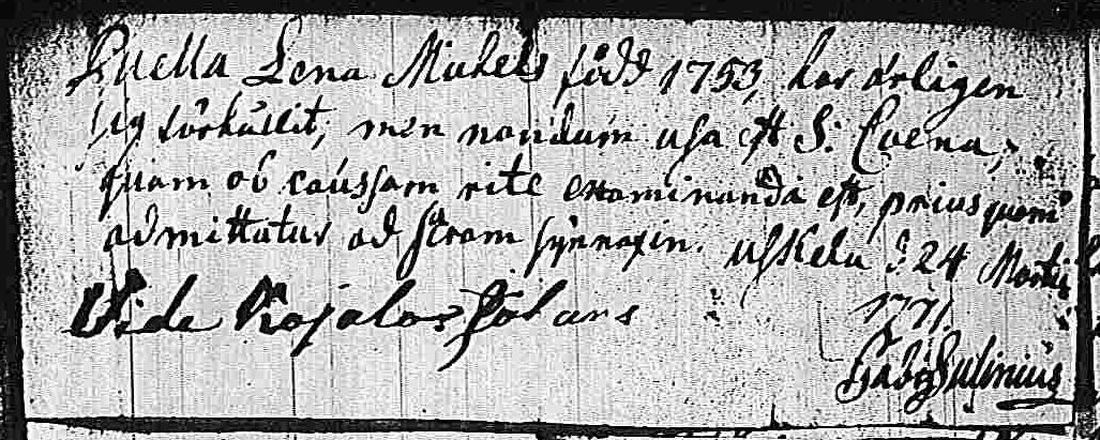 Puella Lena Michels född 1753, har ärligen
sig förhållit, men nondum usa est S: Coena,
quam ob caussam rite examinanda est, priusquam
admittatur ad sacram synaxin. Uskela d. 24 Martii
1771.
Vide Rojalas
Gabr Salinius